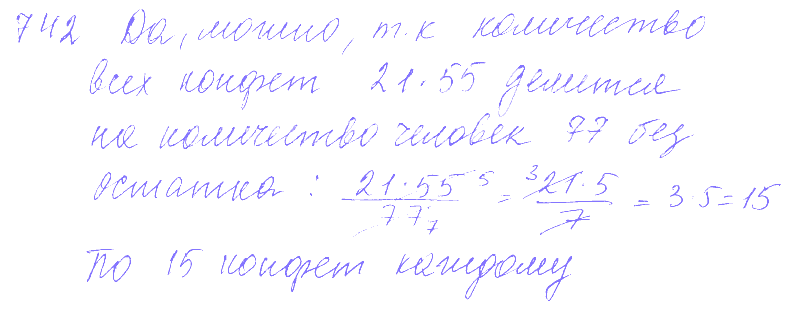 742 Да, можно, т.к количество
всех конфет 21·55 делится
на количество человек 77 без
остатка: 21·55 5 / 77 7 = 3 21·5 / 7 = 3·5=15
По 15 конфет каждому